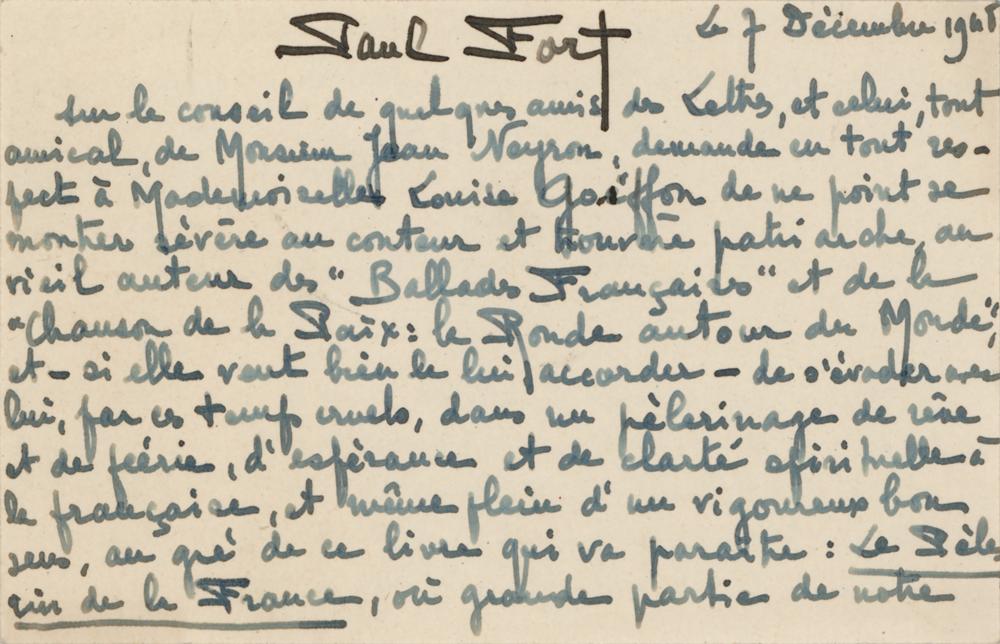 Paul Fort Le 7 Décembre 194
sur le conseil de quelques amis des Lettres, et celui, tout
amical, de Monsieur Jean Neyron, demande en tout res-
pect à Mademoiselle Louise Goiffon de ne point se
montrer sévère au conteur et trouvère patriarche, au
vieil auteur des "Ballades Françaises" et de la
"Chanson de la Paix: la Ronde autour du Monde",
et - si elle veut bien le lui accorder - de s'évader avec
lui, par ces temps cruels, dans un pèlerinage de rêve
et de féérie, d'espérance et de clarté spirituelle à
la française, et même plein d'un vigoureux bon
sens, au gré de ce livre qui va paraître : Le Pèle
rin de la France, où grande partie de notre